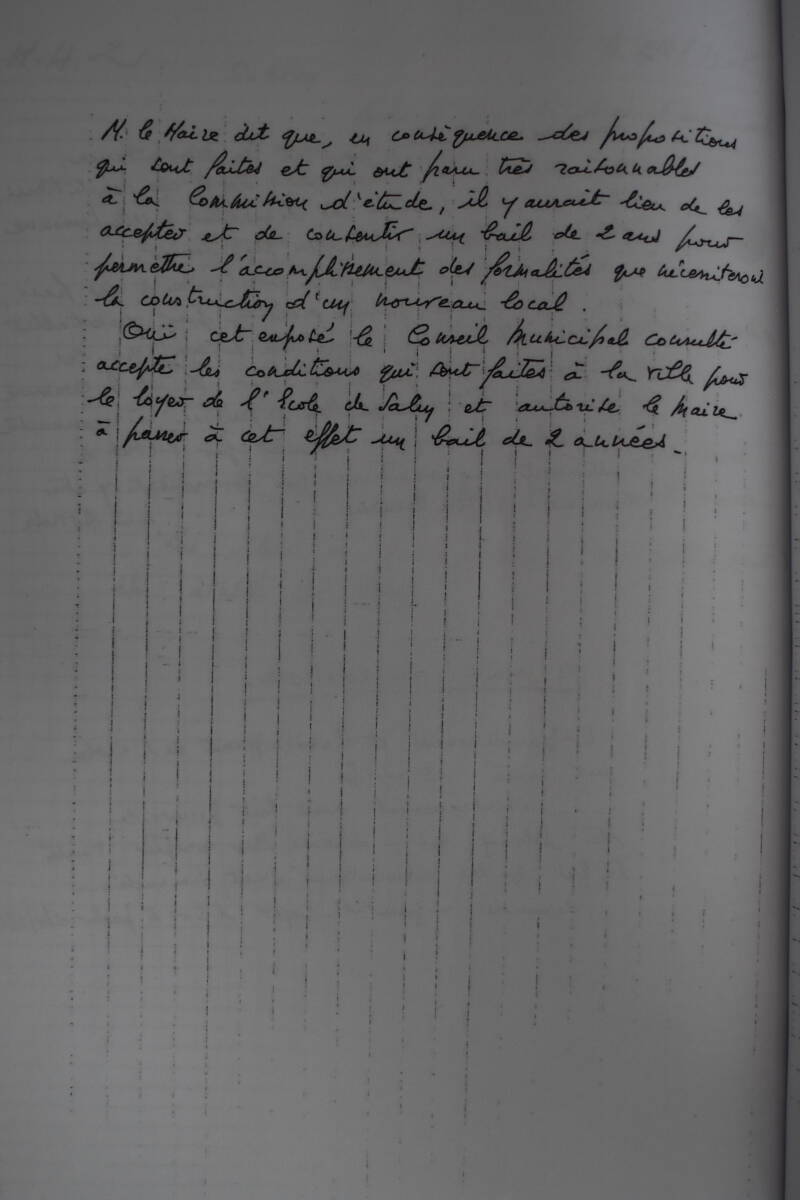 M. le Maire dit que, en conséquence des propositions
qui sont faites et qui ont paru très raisonnables
à la Commission d'étude, il y aurait lieu de les
accepter et de consentir un bail de 2 ans pour
permettre l'accomplissement des formalités que nécessiteront
la construction d'un nouveau local.
Ouï cet exposé le Conseil Municipal consulté
accepte les conditions qui sont faites à la ville pour
le loyer de l'Ecole de et autorise le Maire
à passer à cet effet un bail de 2 années.